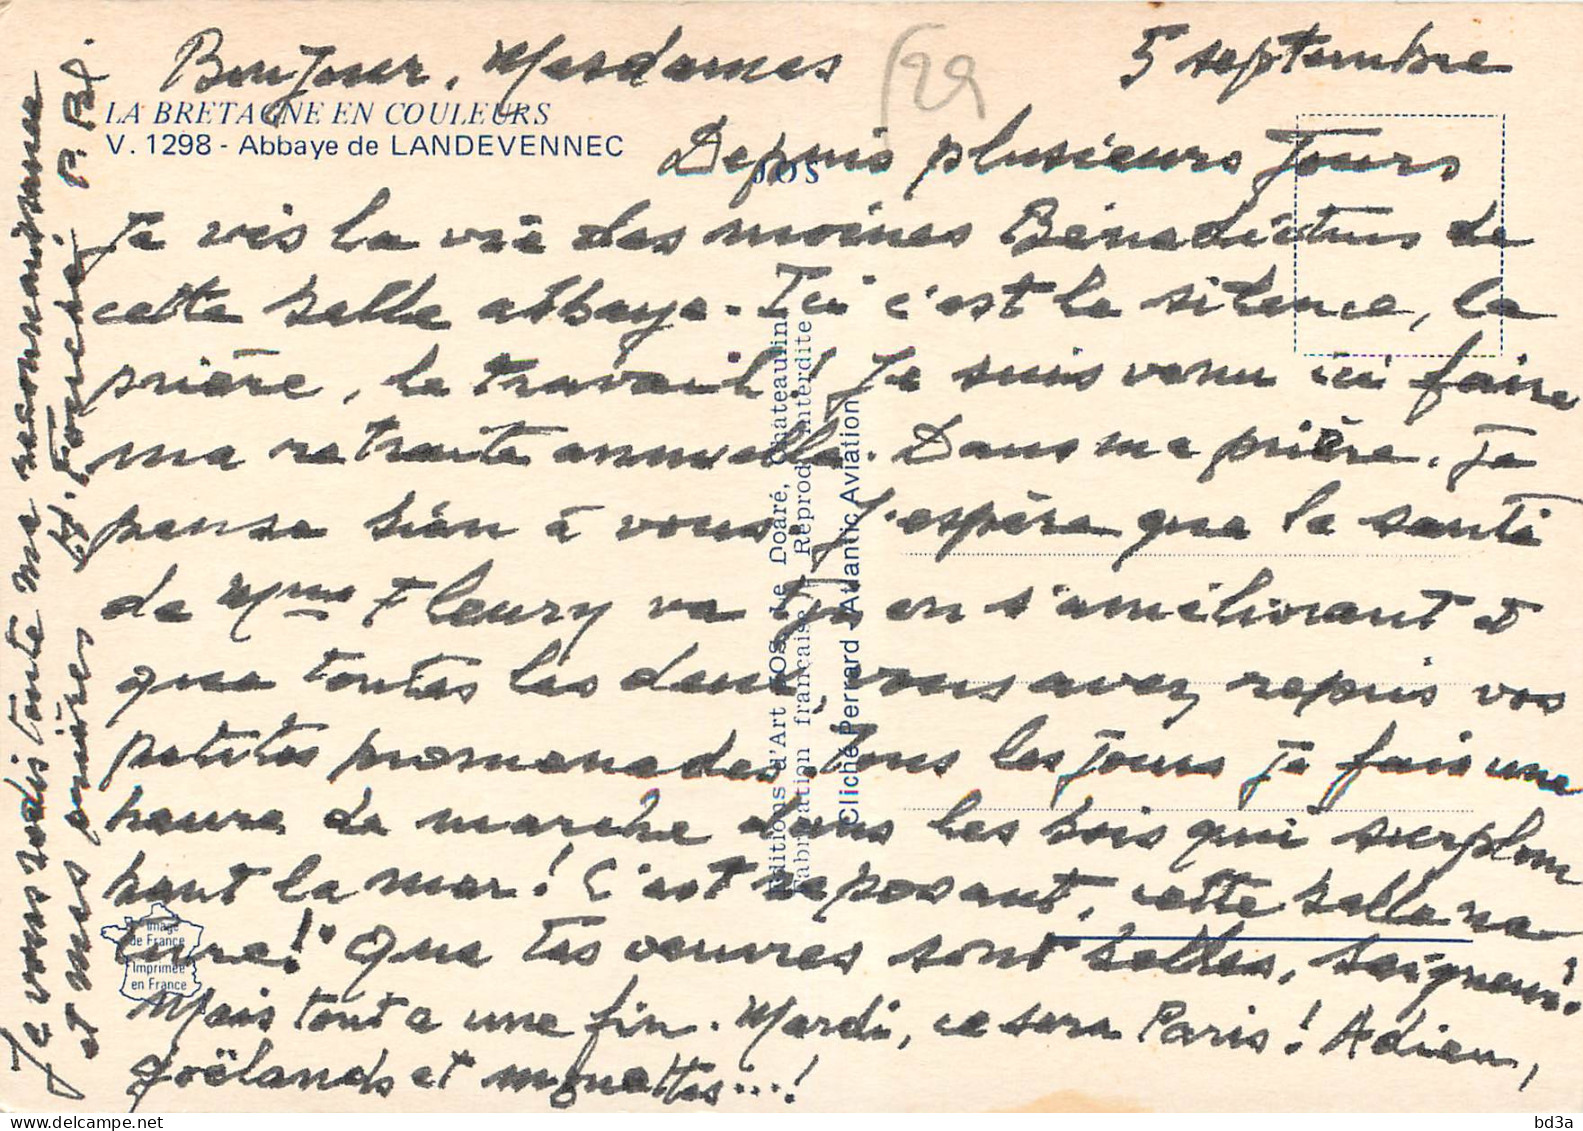 Bonjour, Mesdames 5 septembre
29
LA BRETAGNE EN COULEURS
V. 1298 - Abbaye de LANDEVENNEC
JOS
Depuis plusieurs jours
je vis la vie des moines Bénédictins de
cette belle abbaye. Ici c'est le silence, la
prière, le travail! Je suis venu ici faire
ma retraite annuelle. Dans ma prière, je
pense bien à vous. J'espère que la santé
de Mme Fleury va en s'améliorant et
que toutes les deux, vous avez repris vos
petites promenades. Tous les jours je fais une
heure de marche dans les bois qui surplom
bent la mer! C'est reposant, cette belle na-
ture!" Que tes œuvres sont belles, Seigneur!
Mais tout a une fin. Mardi, ce sera Paris! Adieu,
goëlands et mouettes...!
Je vous redis toute ma reconnaissance
et mes prières H. Fouché P. Bl.
Editions d'Art JOS Le Doaré, Chateaulin
Fabrication française - Reproduc. interdite
Cliché Perrard - Atlantic Aviation
Image
de France
Imprimée
en France
bd3a